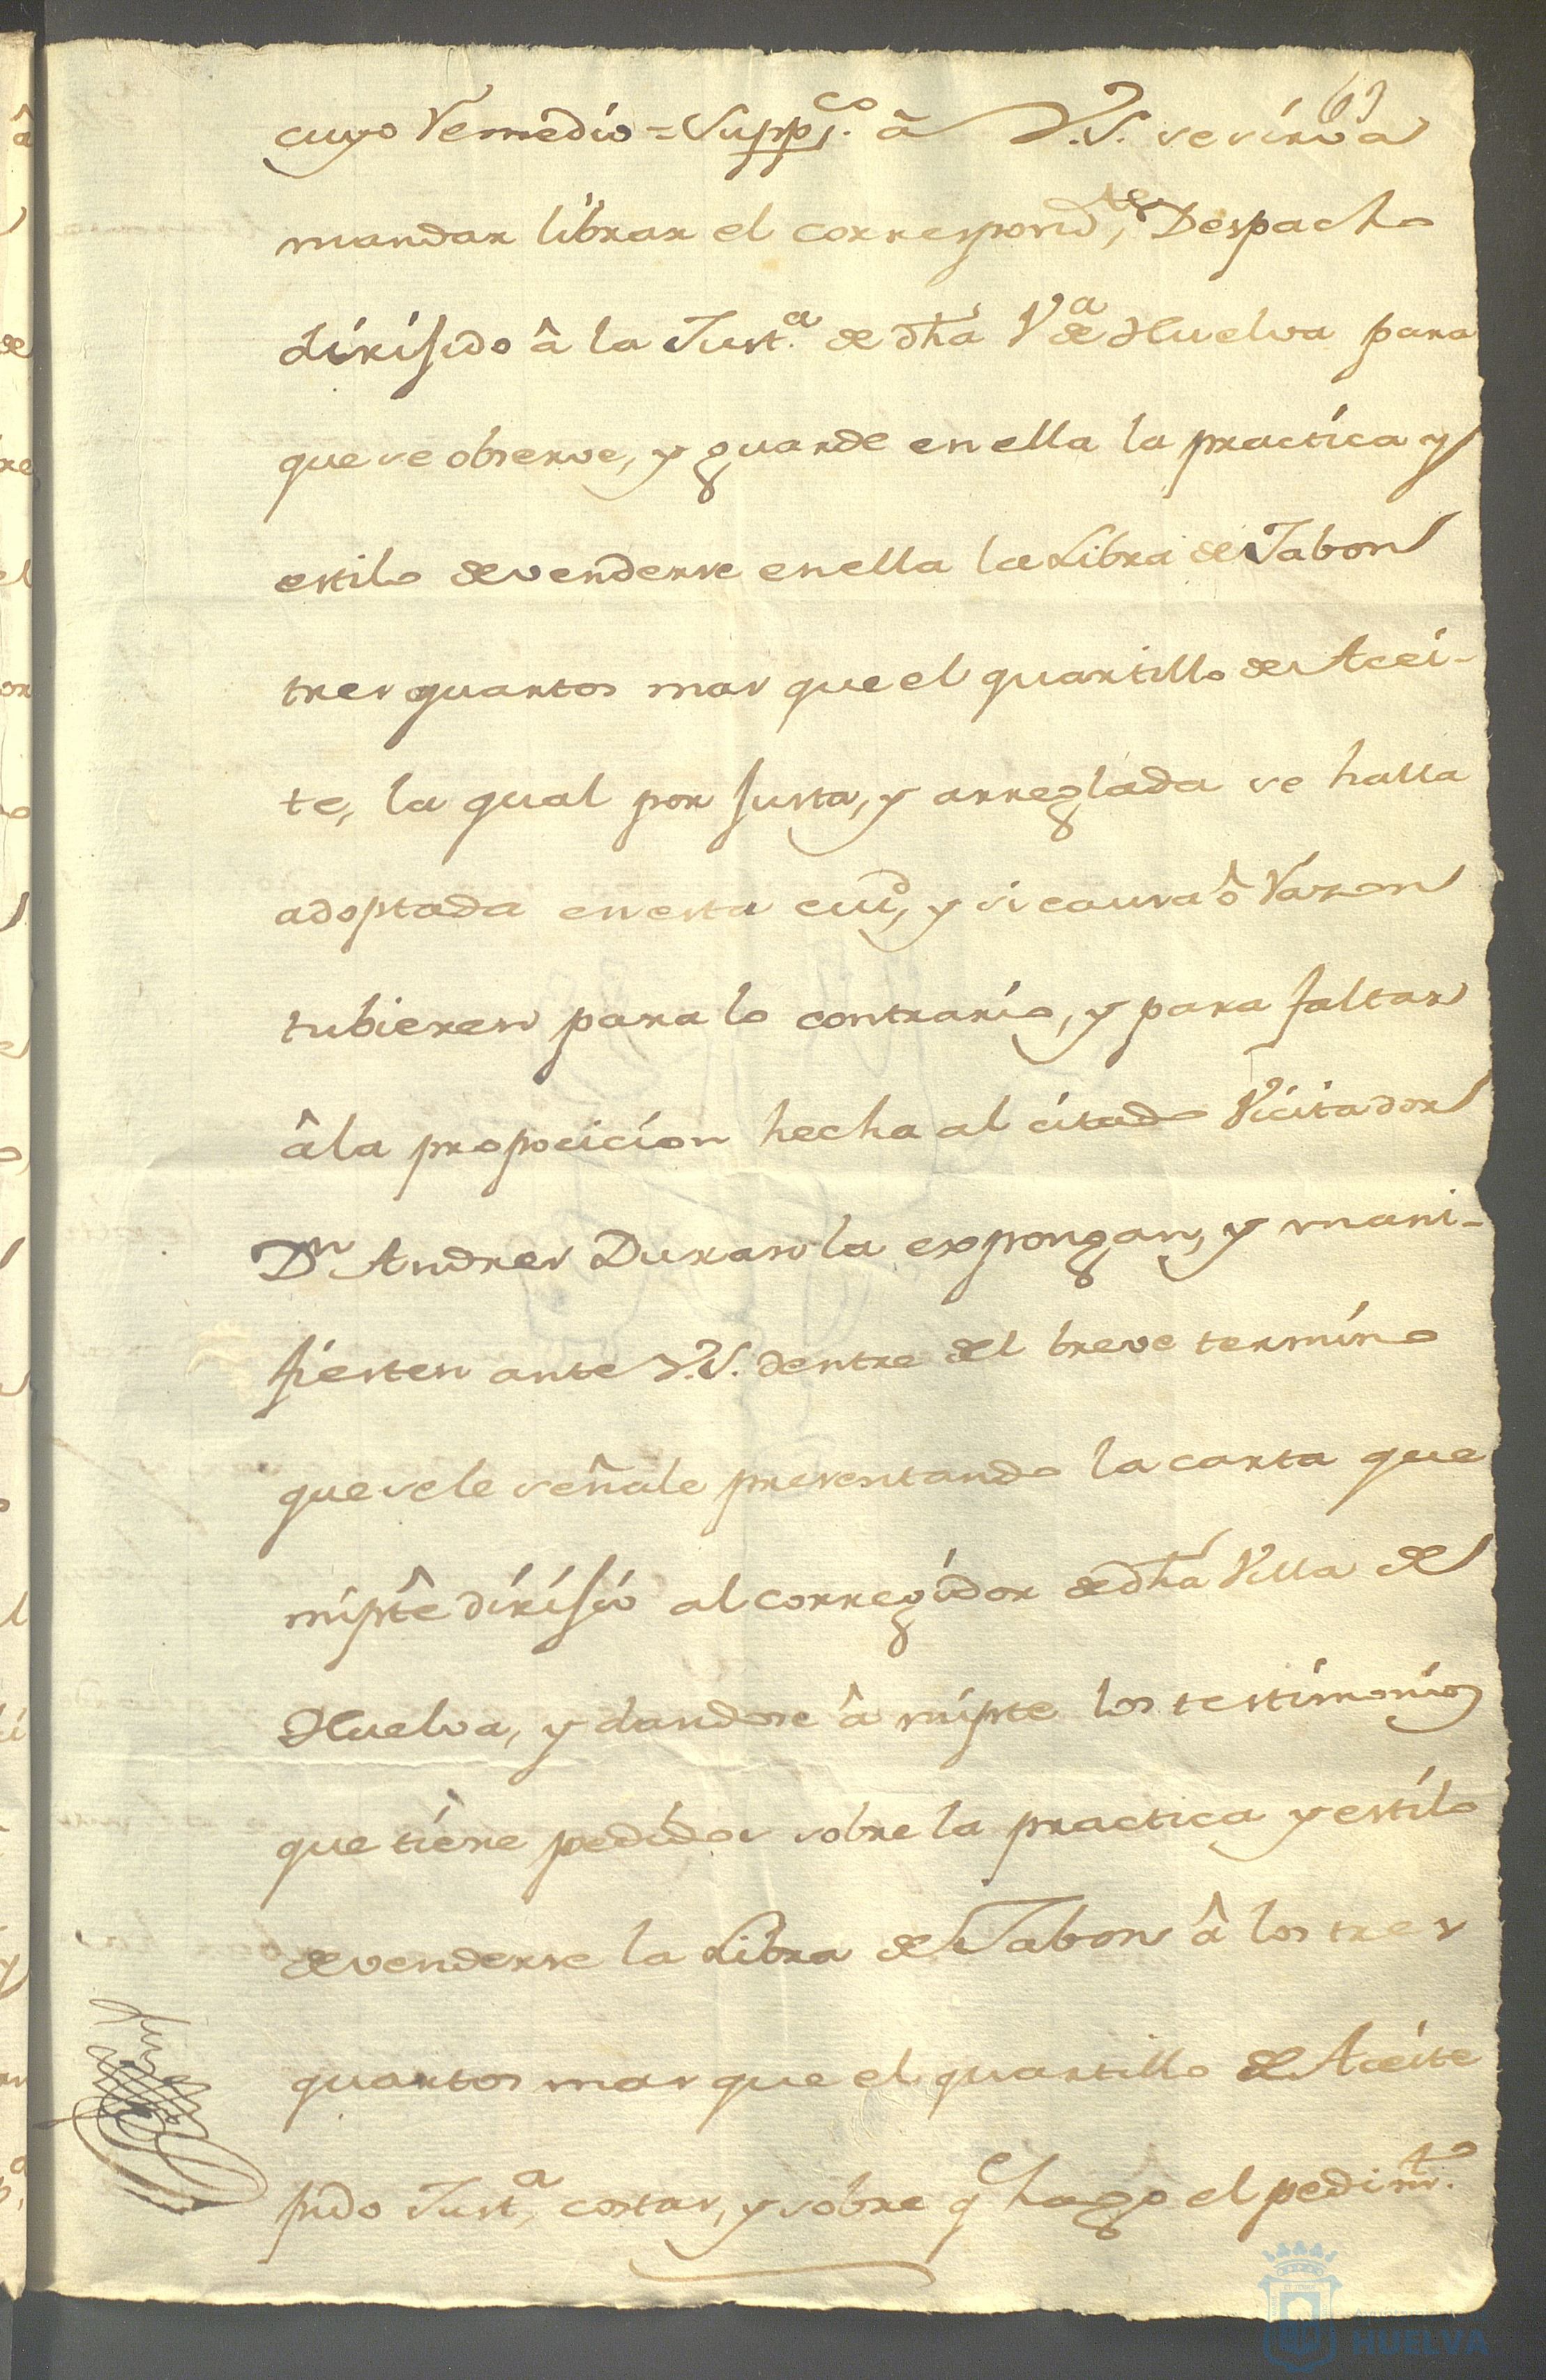 63
cuyo Remedio = Supp.co â V.S. se sirva
mandar librar el correspond.te Despacho
dirijido â la Just.a de dha V.a de Huelva para
que se observe, y guarde en ella la practica y
estilo de venderse en ella la Libra de Jabon
tres quartos mas que el quartillo de Acei-
te, la qual por justa, y arreglada se halla
adoptada en esta ciud, y si causa ô Razon
tubieren para lo contrario, y para faltar
â la propocicion hecha al citado Vicitador
Dn Andres Duran la expongan, y mani-
fiesten ante V.S. dentre del breve termino
que se le señale presentando la carta que
mi pte dirijió al corregidor de dha Villa de
Huelva, y dandose â mi pte los testimonios
que tiene pedidos sobre la practica y estilo
de venderse la Libra de Jabon â los tres
quartos mas que el quartillo de Aceite
pido Just.a, costas, y sobre q.e hago el pedim.to
HUELVA